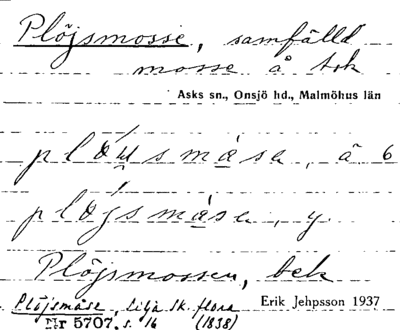 Plöjsmosse, samfälld
mosse å tsk
Asks sn., Onsjö hd., Malmöhus län
plöjsmåsen, ä 6
plöjsmåsen, y.
Plöjsmossen, bek
Plöjsmåse, Lilja Sk. flora
Erik Jehpsson 1937
Nr 5707. s. 16 (1838)